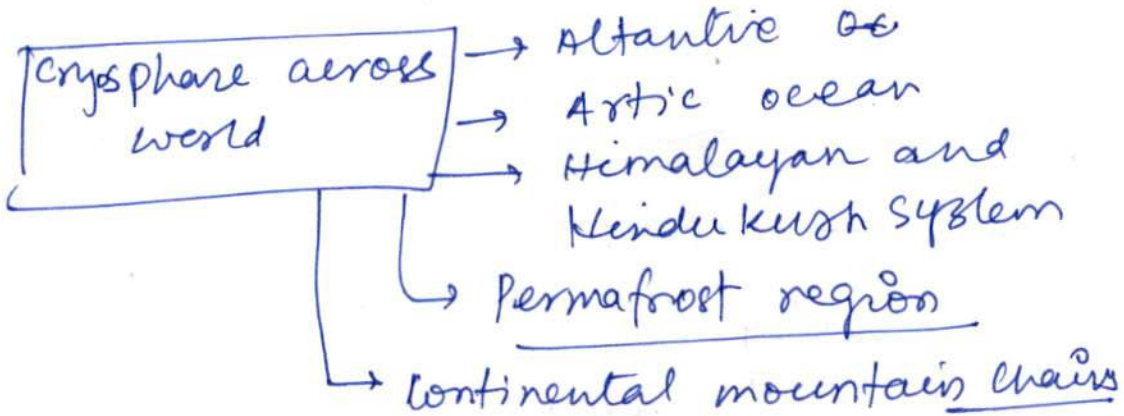 Cryosphare across
world
→ Altantic Oc
→ Artic ocean
→ Himalayan and
Hindu Kush System
→ Permafrost region
→ Continental mountain chains